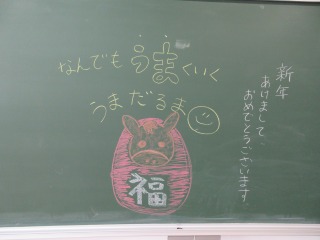 なんでもうまくいく
うまだるま
福
新年
あけまして、
おめでとうございます